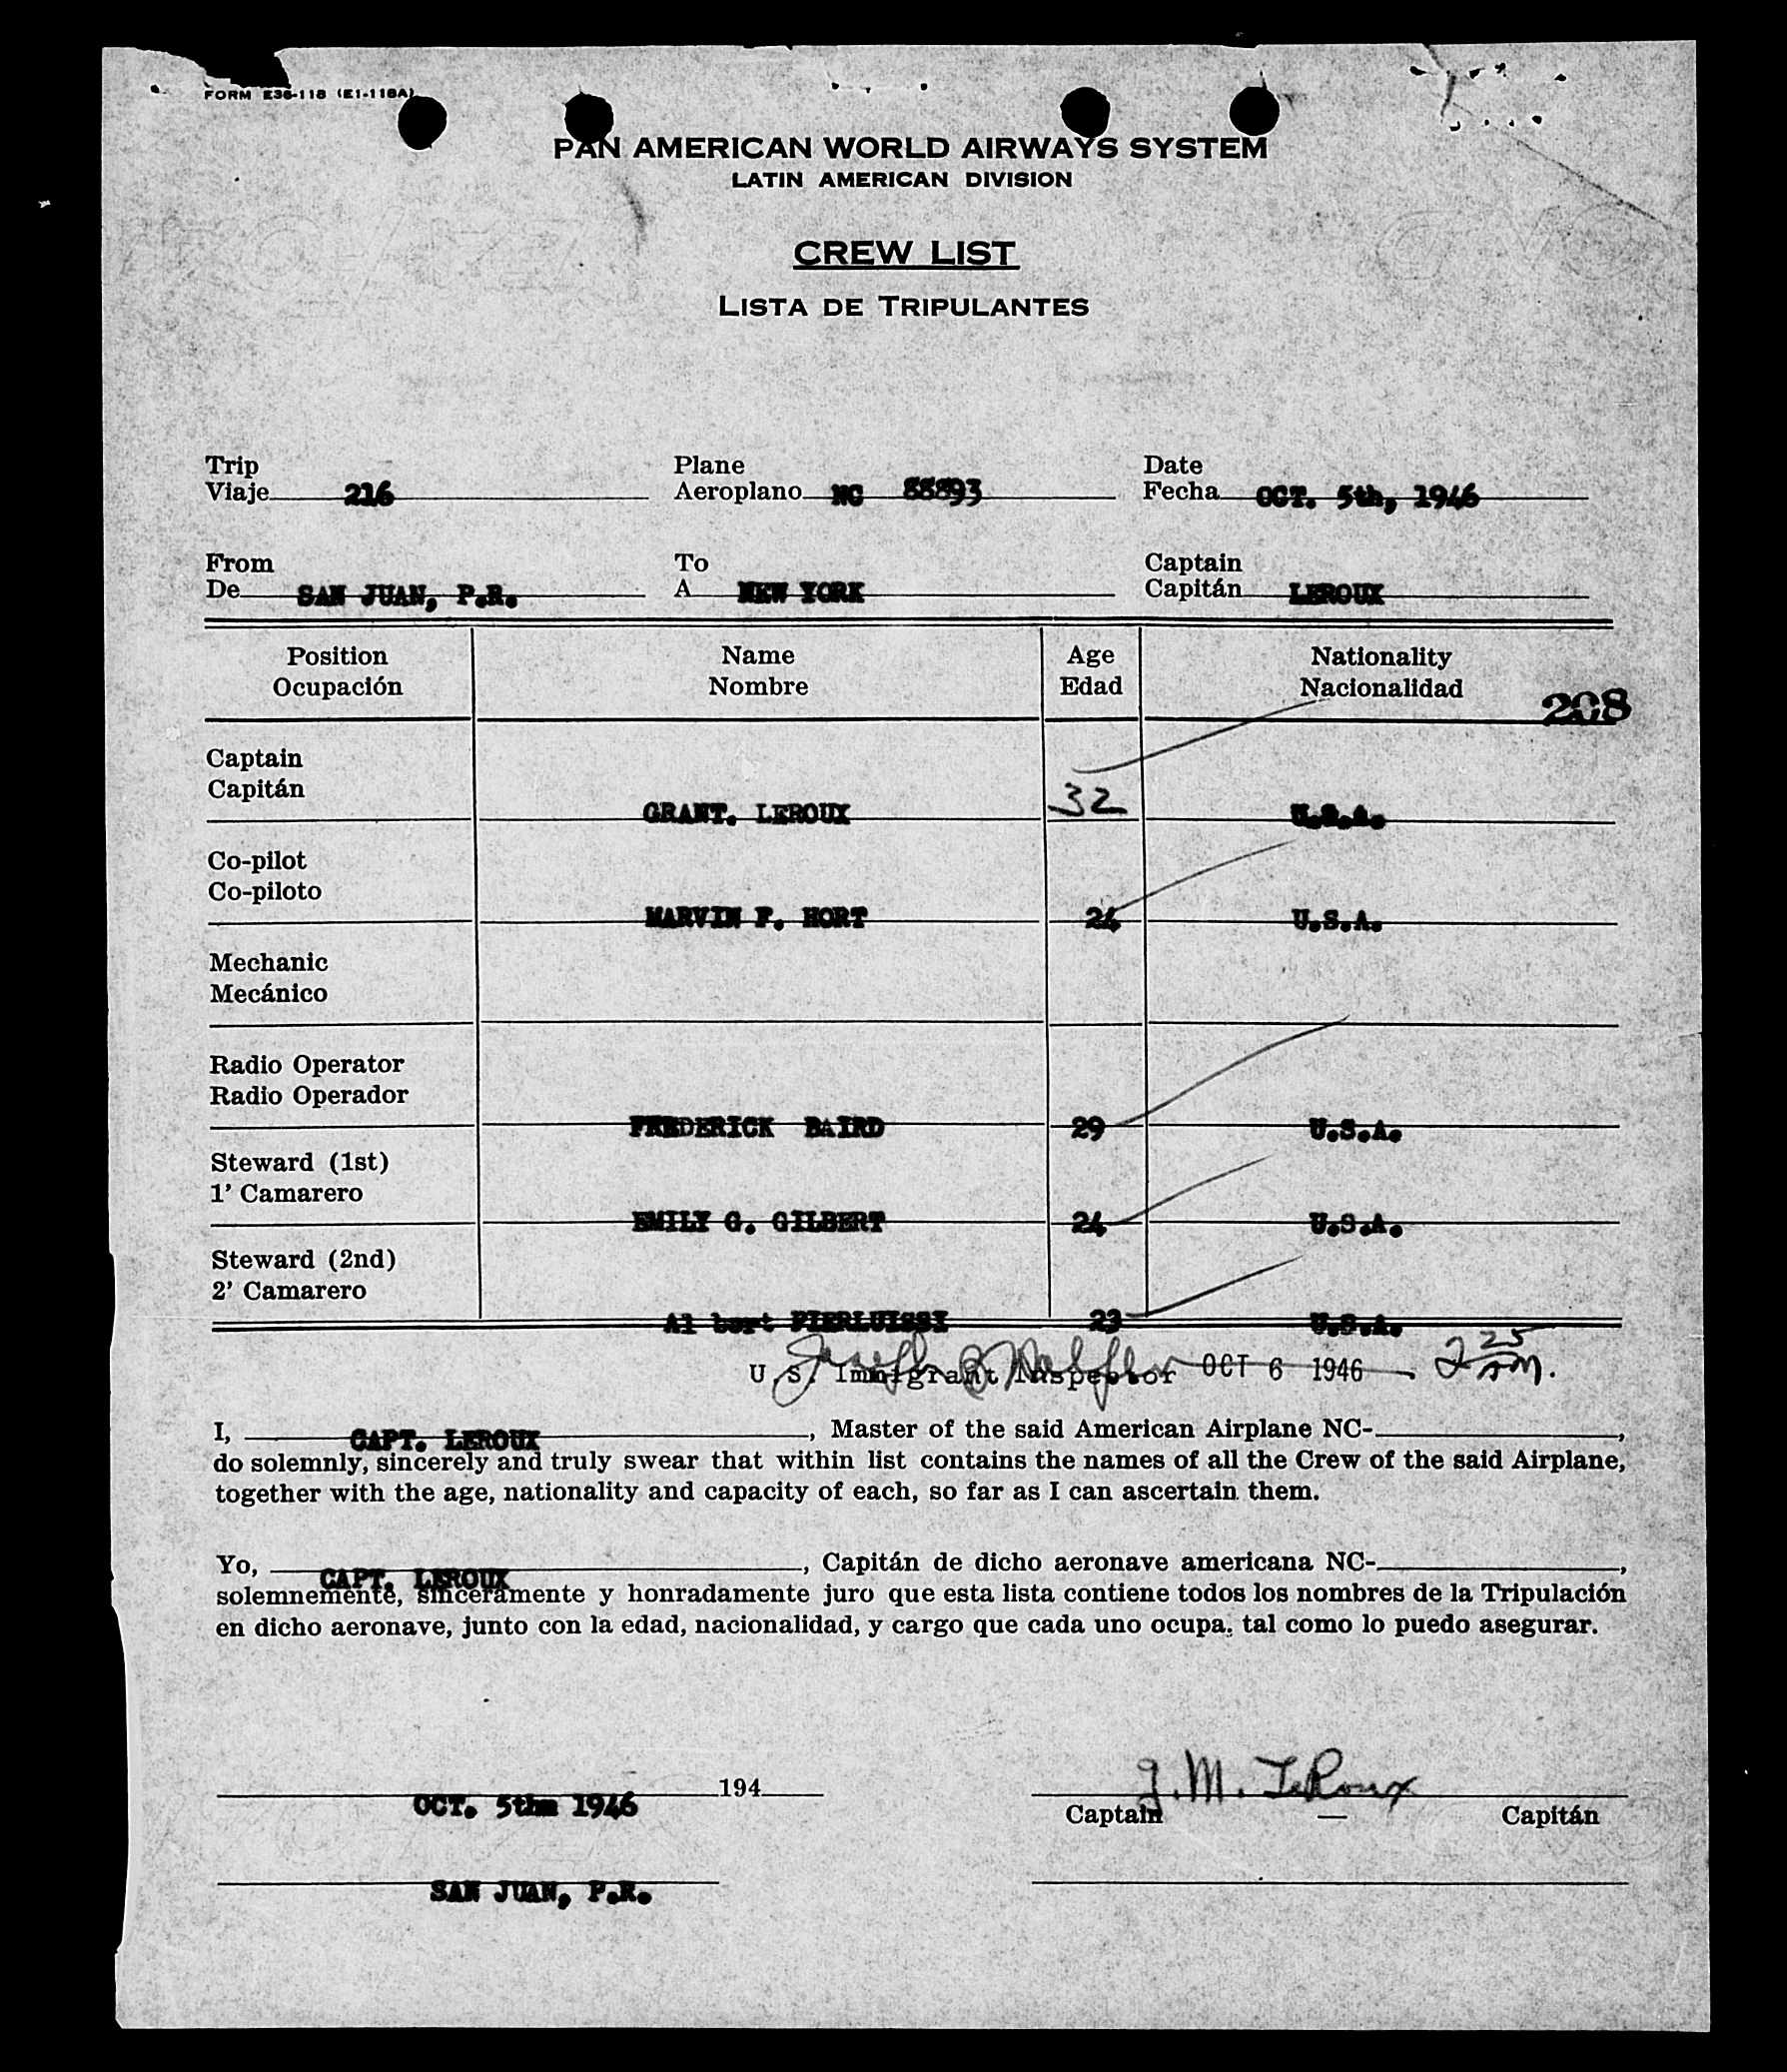 FORM E36-118 (E1-118A)
PAN AMERICAN WORLD AIRWAYS SYSTEM
LATIN AMERICAN DIVISION
CREW LIST
LISTA DE TRIPULANTES
Trip Plane Date
Viaje 216 Aeroplano NC 88893 Fecha OCT. 5th, 1946
From To Captain
De SAN JUAN, P.R. A NEW YORK Capitán LEROUX
Position Name Age Nationality
Ocupación Nombre Edad Nacionalidad
208
Captain
Capitán
GRANT. LEROUX 32 U.S.A.
Co-pilot
Co-piloto
MARVIN F. HORT 24 U.S.A.
Mechanic
Mecánico
Radio Operator
Radio Operador
FREDERICK BAIRD 29 U.S.A.
Steward (1st)
1' Camarero
EMILY G. GILBERT 24 U.S.A.
Steward (2nd)
2' Camarero
Al bert PIERLUISSI 23 U.S.A.
U.S. Immigrant Inspector OCT 6 1946 2 25 AM.
I, CAPT. LEROUX, Master of the said American Airplane NC-,
do solemnly, sincerely and truly swear that within list contains the names of all the Crew of the said Airplane,
together with the age, nationality and capacity of each, so far as I can ascertain them.
Yo, CAPT. LEROUX, Capitán de dicho aeronave americana NC-,
solemnemente, sinceramente y honradamente juro que esta lista contiene todos los nombres de la Tripulación
en dicho aeronave, junto con la edad, nacionalidad, y cargo que cada uno ocupa, tal como lo puedo asegurar.
194 G.M. LeRoux
OCT. 5thm 1946 Captain — Capitán
SAN JUAN, P.R.